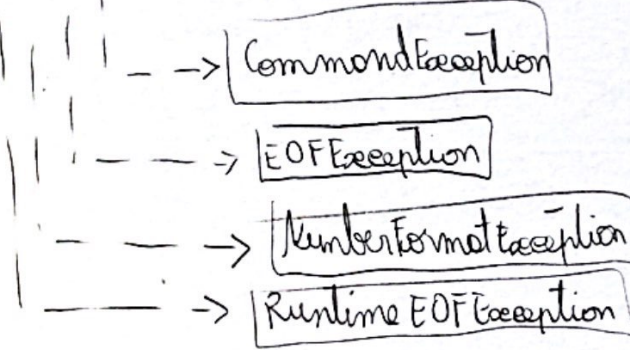 CommandException
EOFException
NumberFormatException
Runtime EOFException